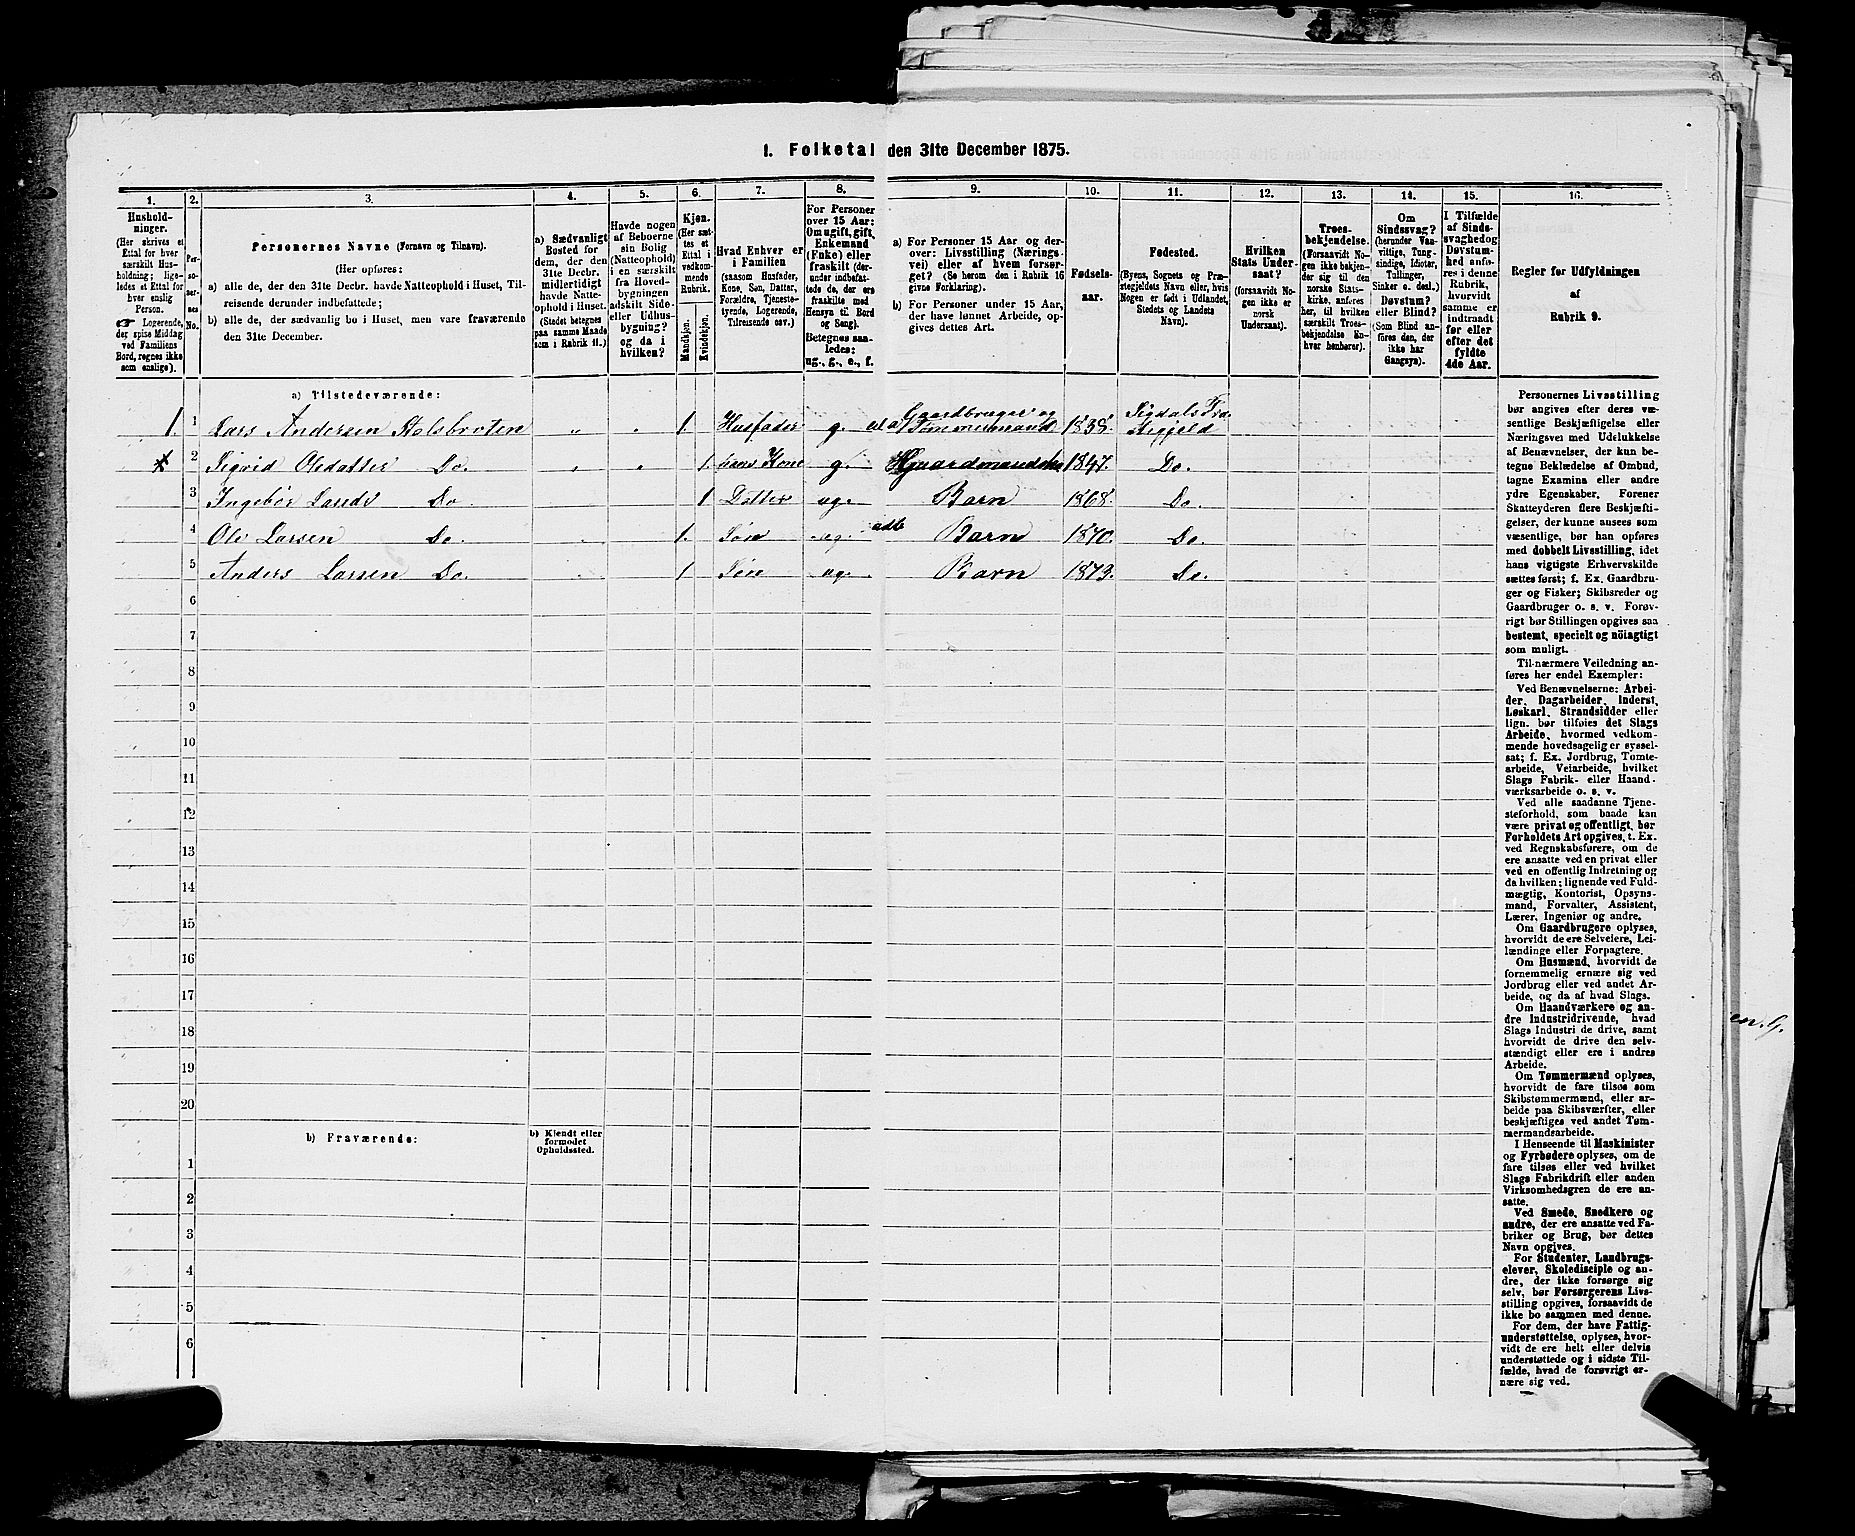 1. Folketal den 31te December 1875.
1. 2. 3. 4. 5. 6. 7. 8. 9. 10. 11. 12. 13. 14. 15. 16.
Hushold-
ninger.
(Her skrives et
Ettal for hver
særskilt Hus-
holdning; lige-
ledes et Ettal for
hver enslig
Person.
☞ Logerende,
der spise Middag
ved Familiens
Bord, regnes ikke
som enslige).
Per-
so-
ner-
nes
No.
Personernes Navne (Fornavn og Tilnavn).
(Her opføres:
a) alle de, der den 31te Decbr. havde Natteophold i Huset, Til-
reisende derunder indbefattede;
b) alle de, der sædvanlig bo i Huset, men vare fraværende
den 31te December.
a) Sædvanligt
Bosted for
dem, der den
31te Decbr.
midlertidigt
havde Natte-
ophold i Huset.
(Stedet betegnes
paa samme Maade
som i Rubrik 11.)
Havde nogen
af Beboerne
sin Bolig
(Natteophold)
i en særskilt
fra Hoved-
bygningen
adskilt Side-
eller Udhus-
bygning?
og da i
hvilken?
Kjøn.
(Her sæt-
tes et
Ettal i
vedkom-
mende
Rubrik.
Mandkjøn.
Kvindekjøn.
Hvad Enhver er
i Familien
(saasom Husfader,
Kone, Søn, Datter,
Forældre, Tjeneste-
tyende, Logerende,
Tilreisende osv.)
For Personer
over 15 Aar:
Om ugift, gift,
Enkemand
(Enke) eller
fraskilt (der-
under indbefat-
tede de, der ere
fraskilte med
Hensyn til Bord
og Seng).
Betegnes saa-
ledes:
ug., g., e., f.
a) For Personer 15 Aar og der-
over: Livsstilling (Nærings-
vei) eller af hvem forsør-
get? (Se herom den i Rubrik 16
givne Forklaring).
b) For Personer under 15 Aar,
der have lønnet Arbeide, op-
gives dettes Art.
Fødsels-
aar.
Fødested.
(Byens, Sognets og Præ-
stegjeldets Navn eller, hvis
Nogen er født i Udlandet,
Stedets og Landets
Navn).
Hvilken
Stats Under-
saat?
(forsaavidt No-
gen ikke er
norsk
Undersaat).
Troes-
bekjendelse.
(Forsaavidt No-
gen ikke bekjen-
der sig til den
norske Stats-
kirke, anføres
her, til hvilken
særskilt Troes-
bekjendelse En-
hver henhører).
Om
Sindssvag?
(herunder Van-
vittige, Tung-
sindige, Idioter,
Tullinger,
Sinker o. desl.)
Døvstum?
eller Blind?
(Som Blind an-
føres den, der
ikke har
Gangsyn).
I Tilfælde
af Sinds-
svaghed og
Døvstum-
hed anfø-
res i denne
Rubrik,
hvorvidt
samme er
indtraadt
før eller
efter det
fyldte
4de Aar.
Regler for Udfyldningen
af
Rubrik 9.
a) Tilstedeværende:
1. 1 Lars Andersen Stolsbroten „ „ 1. Husfader g. Gaardbruger og Tømmermand 1838. Sigdals
2 Sigrid Olsdatter Do. „ „ 1. hans Kone g. 1847. Do.
3 Ingebor Larsdt Do 1 Datter ug. Barn 1868. Do.
4 Ole Larsen Do. 1. Søn ug. Barn 1870. Do.
5 Anders Larsen Do. 1 Søn ug. Barn 1873. Do.
6
7
8
9
10
11
12
13
14
15
16
17
18
19
20
b) Fraværende:
b) Kjendt eller
formodet
Opholdssted.
1
2
3
4
5
6
Personernes Livsstilling
bør angives efter deres væ-
sentlige Beskjæftigelse eller
Næringsvei med Udelukkelse
af Benævnelser, der kun be-
tegne Beklædelse af Ombud,
tagne Examina eller andre
ydre Egenskaber. Forener
Skatteyderen flere Beskjæfti-
gelser, der kunne ansees som
væsentlige, bør han opføres
med dobbelt Livsstilling, idet
hans vigtigste Erhvervskilde
sættes først; f. Ex. Gaardbru-
ger og Fisker; Skibsreder og
Gaardbruger o. s. v. Forøv-
rigt bør Stillingen opgives saa
bestemt, specielt og nöiagtigt
som muligt.
Til nærmere Veiledning an-
føres her endel Exempler:
Ved Benævnelserne: Arbei-
der, Dagarbeider, Inderst,
Løskarl, Strandsidder eller
lign. bør tilføies det Slags
Arbeide, hvormed vedkom-
mende hovedsagelig er syssel-
sat; f. Ex. Jordbrug, Tomte-
arbeide, Veiarbeide, hvilket
Slags Fabrik- eller Haand-
værksarbeide o. s. v.
Ved alle saadanne Tjene-
steforhold, som baade kan
være privat og offentligt, bør
Forholdets Art opgives, t. Ex.
ved Regnskabsførere, om de
ere ansatte ved en privat eller
ved en offentlig Indretning og
da hvilken; lignende ved Fuld-
mægtig, Kontorist, Opsyns-
mand, Forvalter, Assistent,
Lærer, Ingeniør og andre.
Om Gaardbrugere oplyses,
hvorvidt de ere Selveiere, Lei-
lændinge eller Forpagtere.
Om Husmænd, hvorvidt de
fornemmelig ernære sig ved
Jordbrug eller ved andet Ar-
beide, og da af hvad Slags.
Om Haandværkere og an-
dre Industridrivende, hvad
Slags Industri de drive, samt
hvorvidt de drive den selv-
stændigt eller ere i andres
Arbeide.
Om Tømmermænd oplyses,
hvorvidt de fare tilsøs som
Skibstømmermænd, eller ar-
beide paa Skibsværfter, eller
beskjæftiges ved andet Tøm-
mermandsarbeide.
I Henseende til Maskinister
og Fyrbødere oplyses, om de
fare tilsøs eller ved hvilket
Slags Fabrikdrift eller anden
Virksomhedsgren de ere an-
satte.
Ved Smede, Snedkere og
andre, der ere ansatte ved Fa-
briker og Brug, bør dettes
Navn opgives.
For Studenter, Landbrugs-
elever, Skoledisciple og an-
dre, der ikke forsørge sig
selv, bør Forsørgerens Livs-
stilling opgives, forsaavidt de
ikke bo sammen med denne.
For dem, der have Fattig-
understøttelse, oplyses, hvor-
vidt de ere helt eller delvis
understøttede og i sidste Til-
fælde, hvad de forøvrigt er-
nære sig ved.